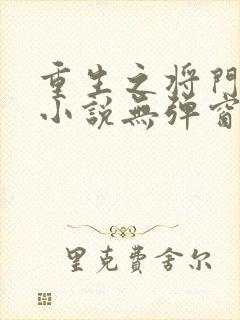 重生之将門
小説無弹窗
里克費舍尔